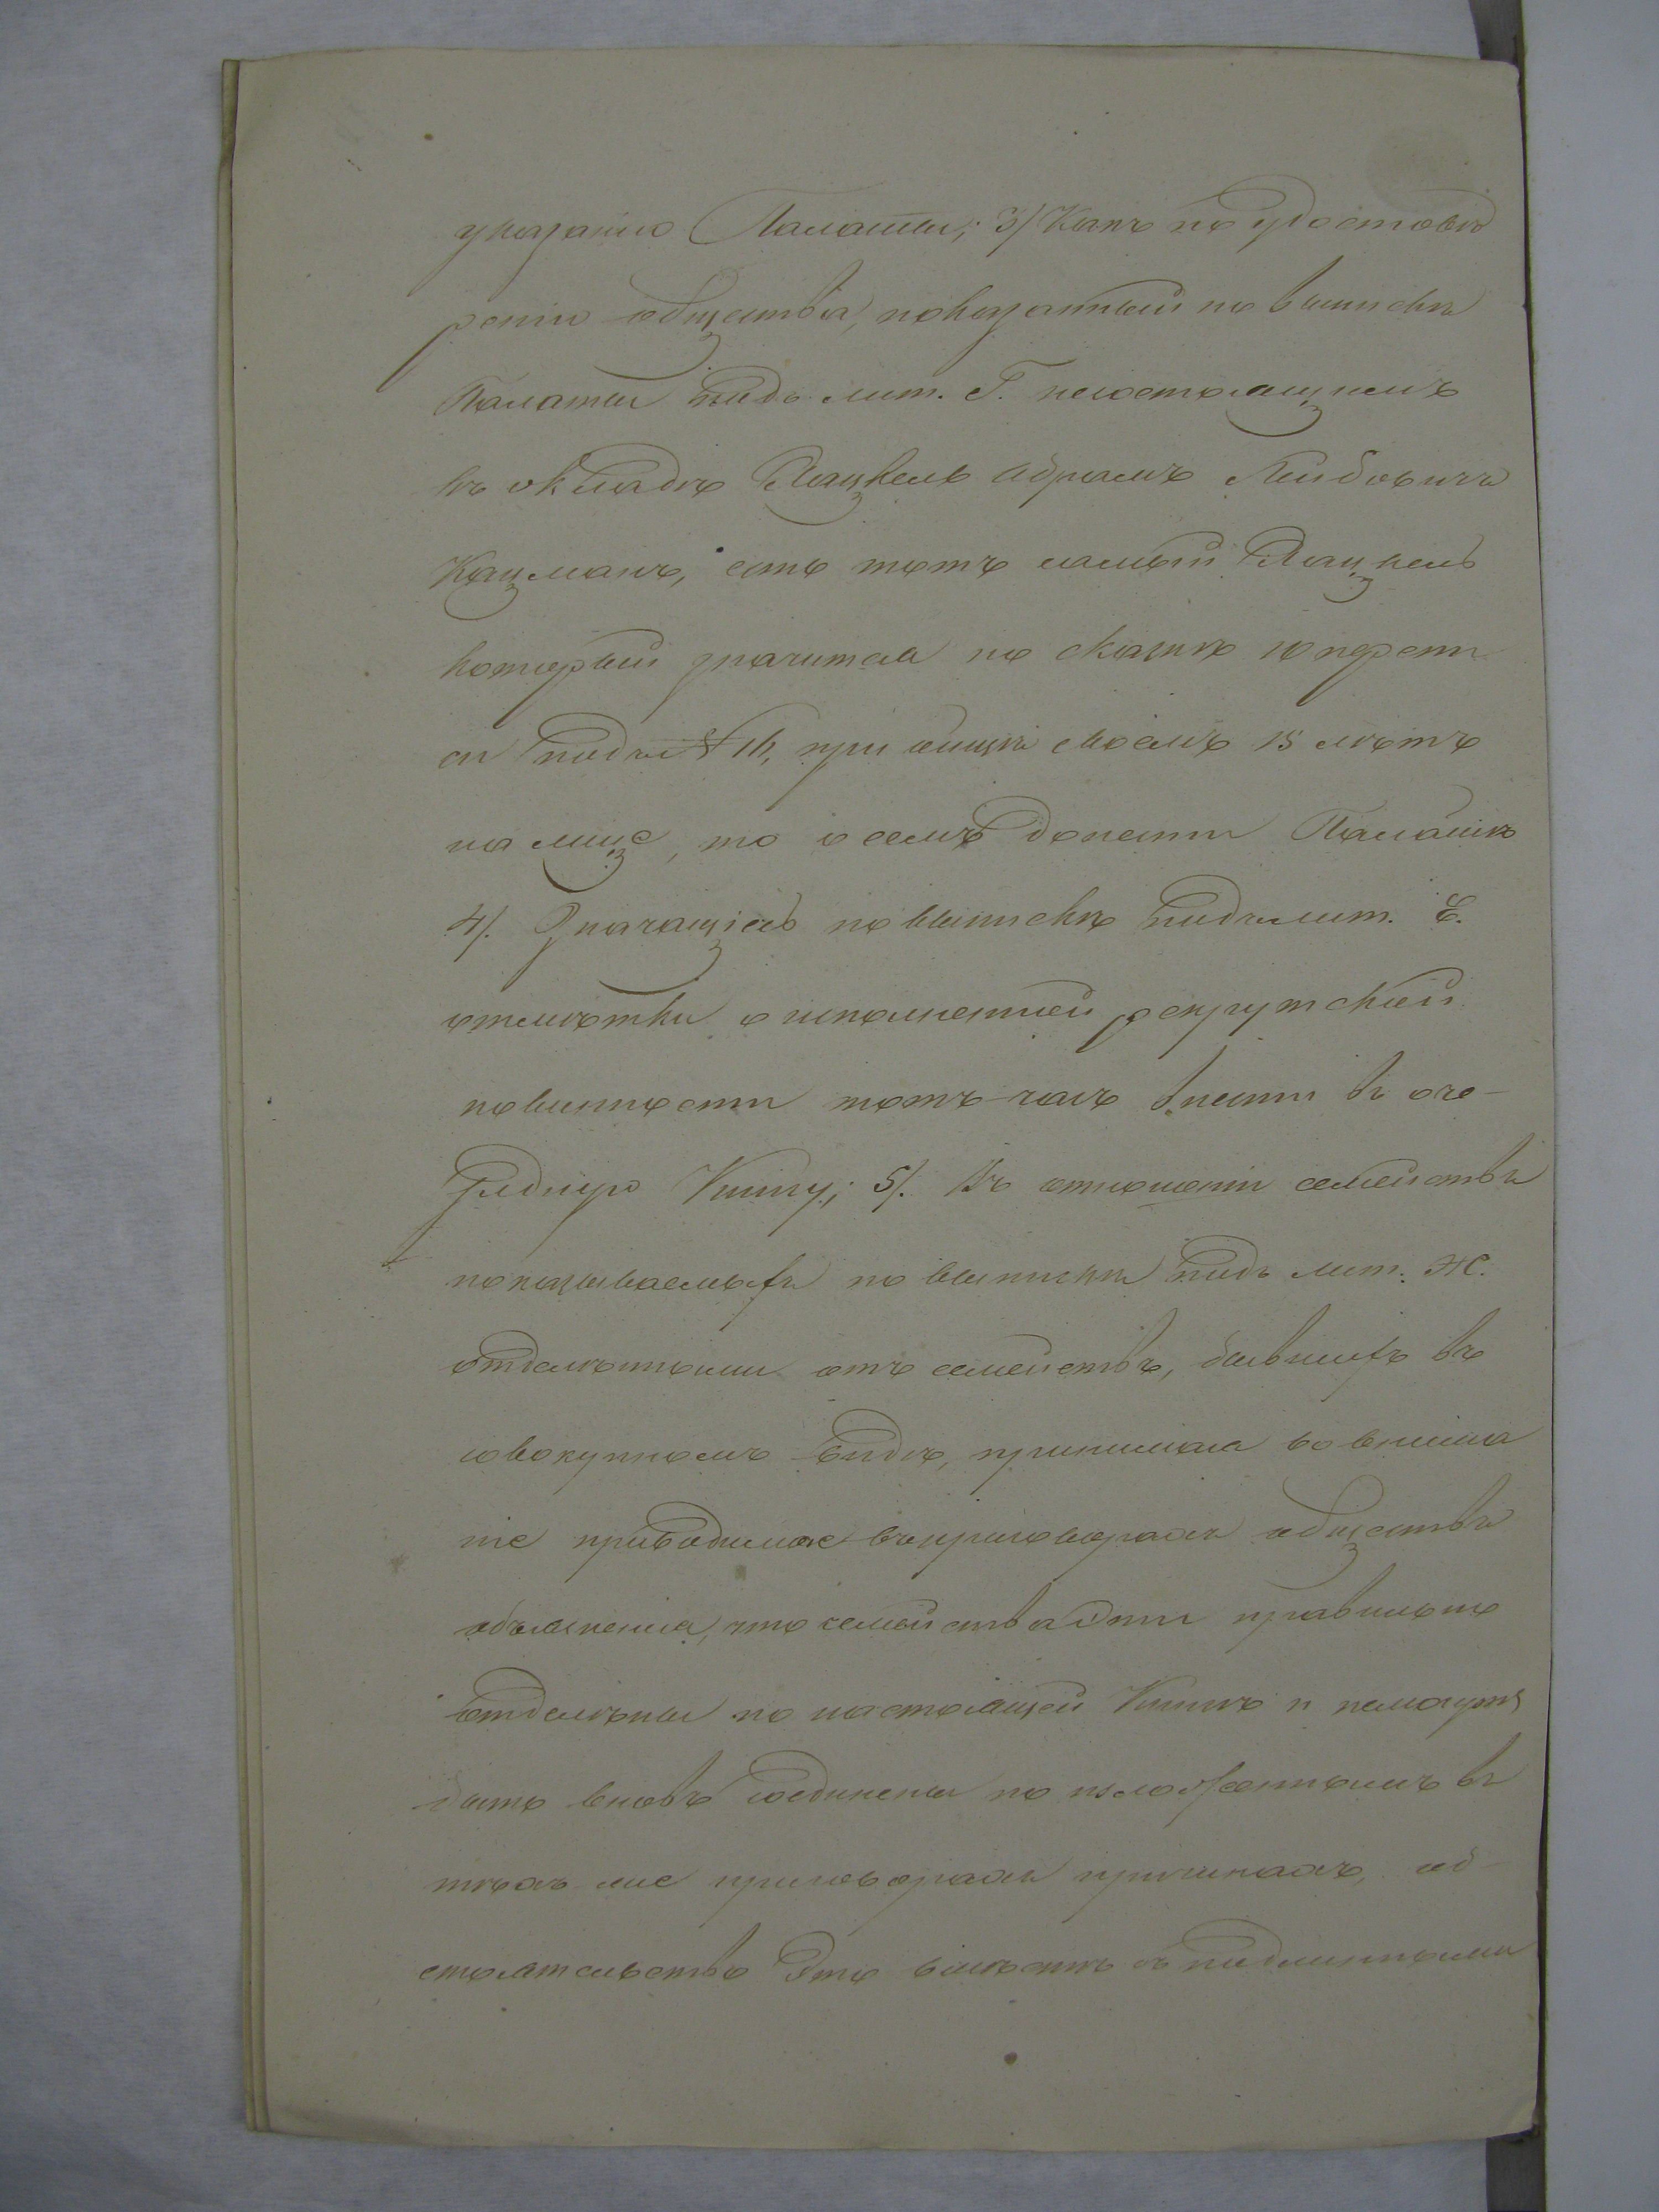 указанію Палаты; 3/ Какъ по удостовѣ
ренію общества, показанный по выпискѣ
Палаты подъ лит. Г. несостоящимъ
въ окладѣ Янкель Абрамъ Лейбовичъ
Кацманъ, есть тотъ самый Янкель
который значится по сказкѣ 10 переписи
си подъ № 16, при отцѣ своемъ 15 лѣтъ
на лице, то о семъ донести Палатѣ
4/. Значащіесь по выпискѣ подъ лит. Е.
отмѣтки о исполненной рекрутской
повинности тотъ-часъ внести въ оче-
редную Книгу; 5/. Въ отношеніи семействъ
показываемыхъ по выпискѣ подъ лит. Ж.
отдѣленными отъ семействъ, бывшихъ въ
совокупномъ видѣ, принимая во внима
ніе приводимое въ приговорахъ общества
объясненія, что семейства эти правильно
отдѣлены по настоящей Книгѣ и немогутъ
быть вновь соединены по изложеннымъ въ
тѣхъ же приговорахъ причинахъ, об-
стоятельство это вмѣстѣ съ подлинными